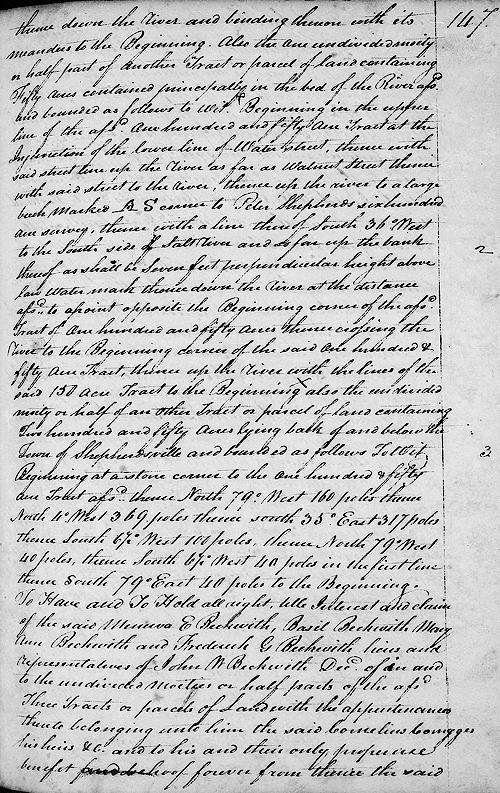 147
thence down the River and binding thereon with its
meanders to the Beginning. Also the one undivided moity
or half part of another Tract or parcel of land containing
Fifty Acres contained principally in the bed of the River afsd.
and bounded as follows to Wit. Beginning in the upper
line of the afsd. One hundred and fifty Acre Tract at the
Injunction of the lower line of Water street, thence with
said street line up the River as far as Walnut Street thence
with said street to the River, thence up the river to a large
beech marked A S corner to Peter Shepherds six hundred
acre survey, thence with a line thereof South 36° West
to the South side of Salt River and so far up the bank
thereof as shall be Seven feet perpendicular height above
low Water mark thence down the River at the distance
afsd. to a point opposite the Beginning corner of the afsd.
Tract of One hundred and fifty Acres thence crossing the
River to the Beginning corner of the said One hundred &
fifty Acre Tract, thence up the River with the lines of the
said 150 Acre Tract to the Beginning x also the undivided
moity or half of an other Tract or parcel of land containing
Two hundred and fifty Acres lying back of and below the
Town of Shepherdsville and bounded as follows To Wit,
Beginning at a stone corner to the One hundred & fifty
acre Tract afsd. thence North 79° West 160 poles thence
North 4° West 369 poles thence south 35° East 317 poles
thence South 6½° West 100 poles, thence North 79° West
40 poles, thence South 6½° West 40 poles in the first line
thence South 79° East 40 poles to the Beginning.
To Have and To Hold all right, title Interest and claim
of the said Menerva E Beckwith, Basil Beckwith Mary
Ann Beckwith and Frederick G Beckwith heirs and
representatives of John W Beckwith Decd. of in and
to the undivided moities or half parts of the afsd.
Three Tracts or parcels of Land with the appurtenances
thereto belonging unto him the said Cornelius Comegges
his heirs &c and to his and their only proper use
benefit and behoof forever from thence the said
2
3